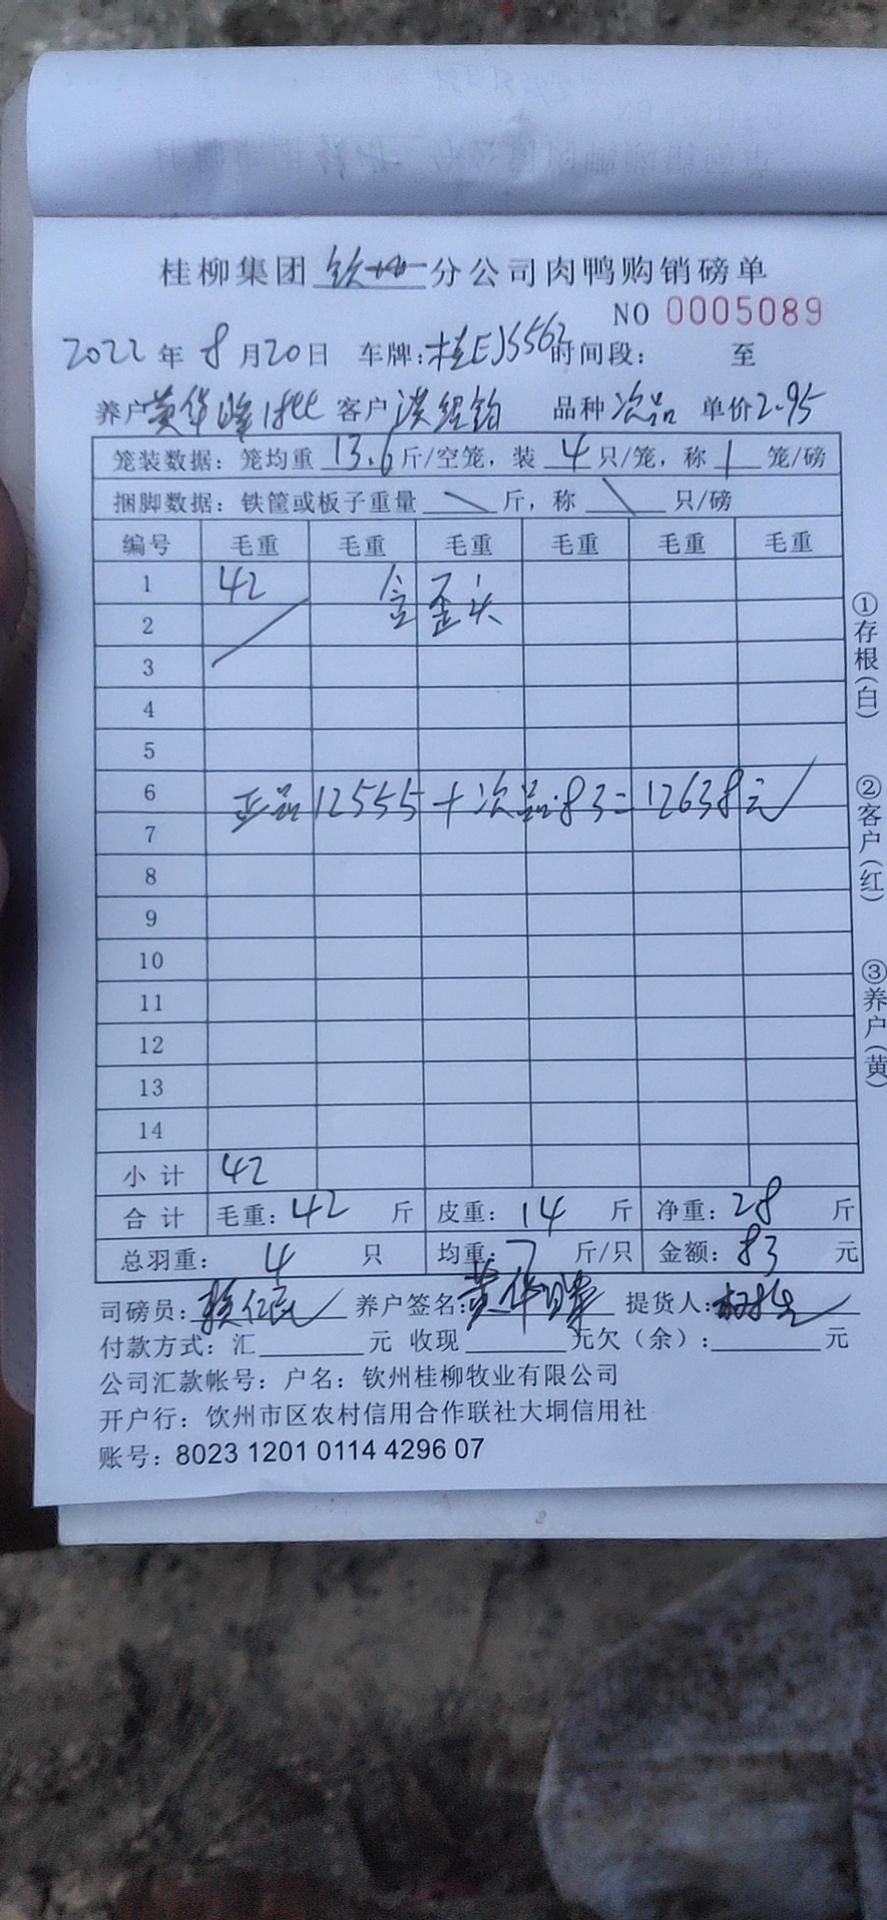 桂柳集团 钦州 分公司肉鸭购销磅单
NO 0005089
2022 年 8 月 20 日 车牌: 桂EJS562 时间段: 至
养户 黄华峰 客户 品种 次品 单价 2.95
笼装数据: 笼均重 13.6 斤/空笼, 装 4 只/笼, 称 1 笼/磅
捆脚数据: 铁筐或板子重量 斤, 称 只/磅
编号 毛重 毛重 毛重 毛重 毛重 毛重
1 42 含歪头
2
3
4
5
6
正品12555+次品:83=12638元
7
8
9
10
11
12
13
14
小计 42
合计 毛重: 42 斤 皮重: 14 斤 净重: 28 斤
总羽重: 4 只 均重: 7 斤/只 金额: 83 元
司磅员: 养户签名: 黄华峰 提货人:
付款方式: 汇 元 收现 元欠(余): 元
公司汇款帐号: 户名: 钦州桂柳牧业有限公司
开户行: 钦州市区农村信用合作联社大垌信用社
账号: 8023 1201 0114 4296 07
①存根(白)
②客户(红)
③养户(黄)